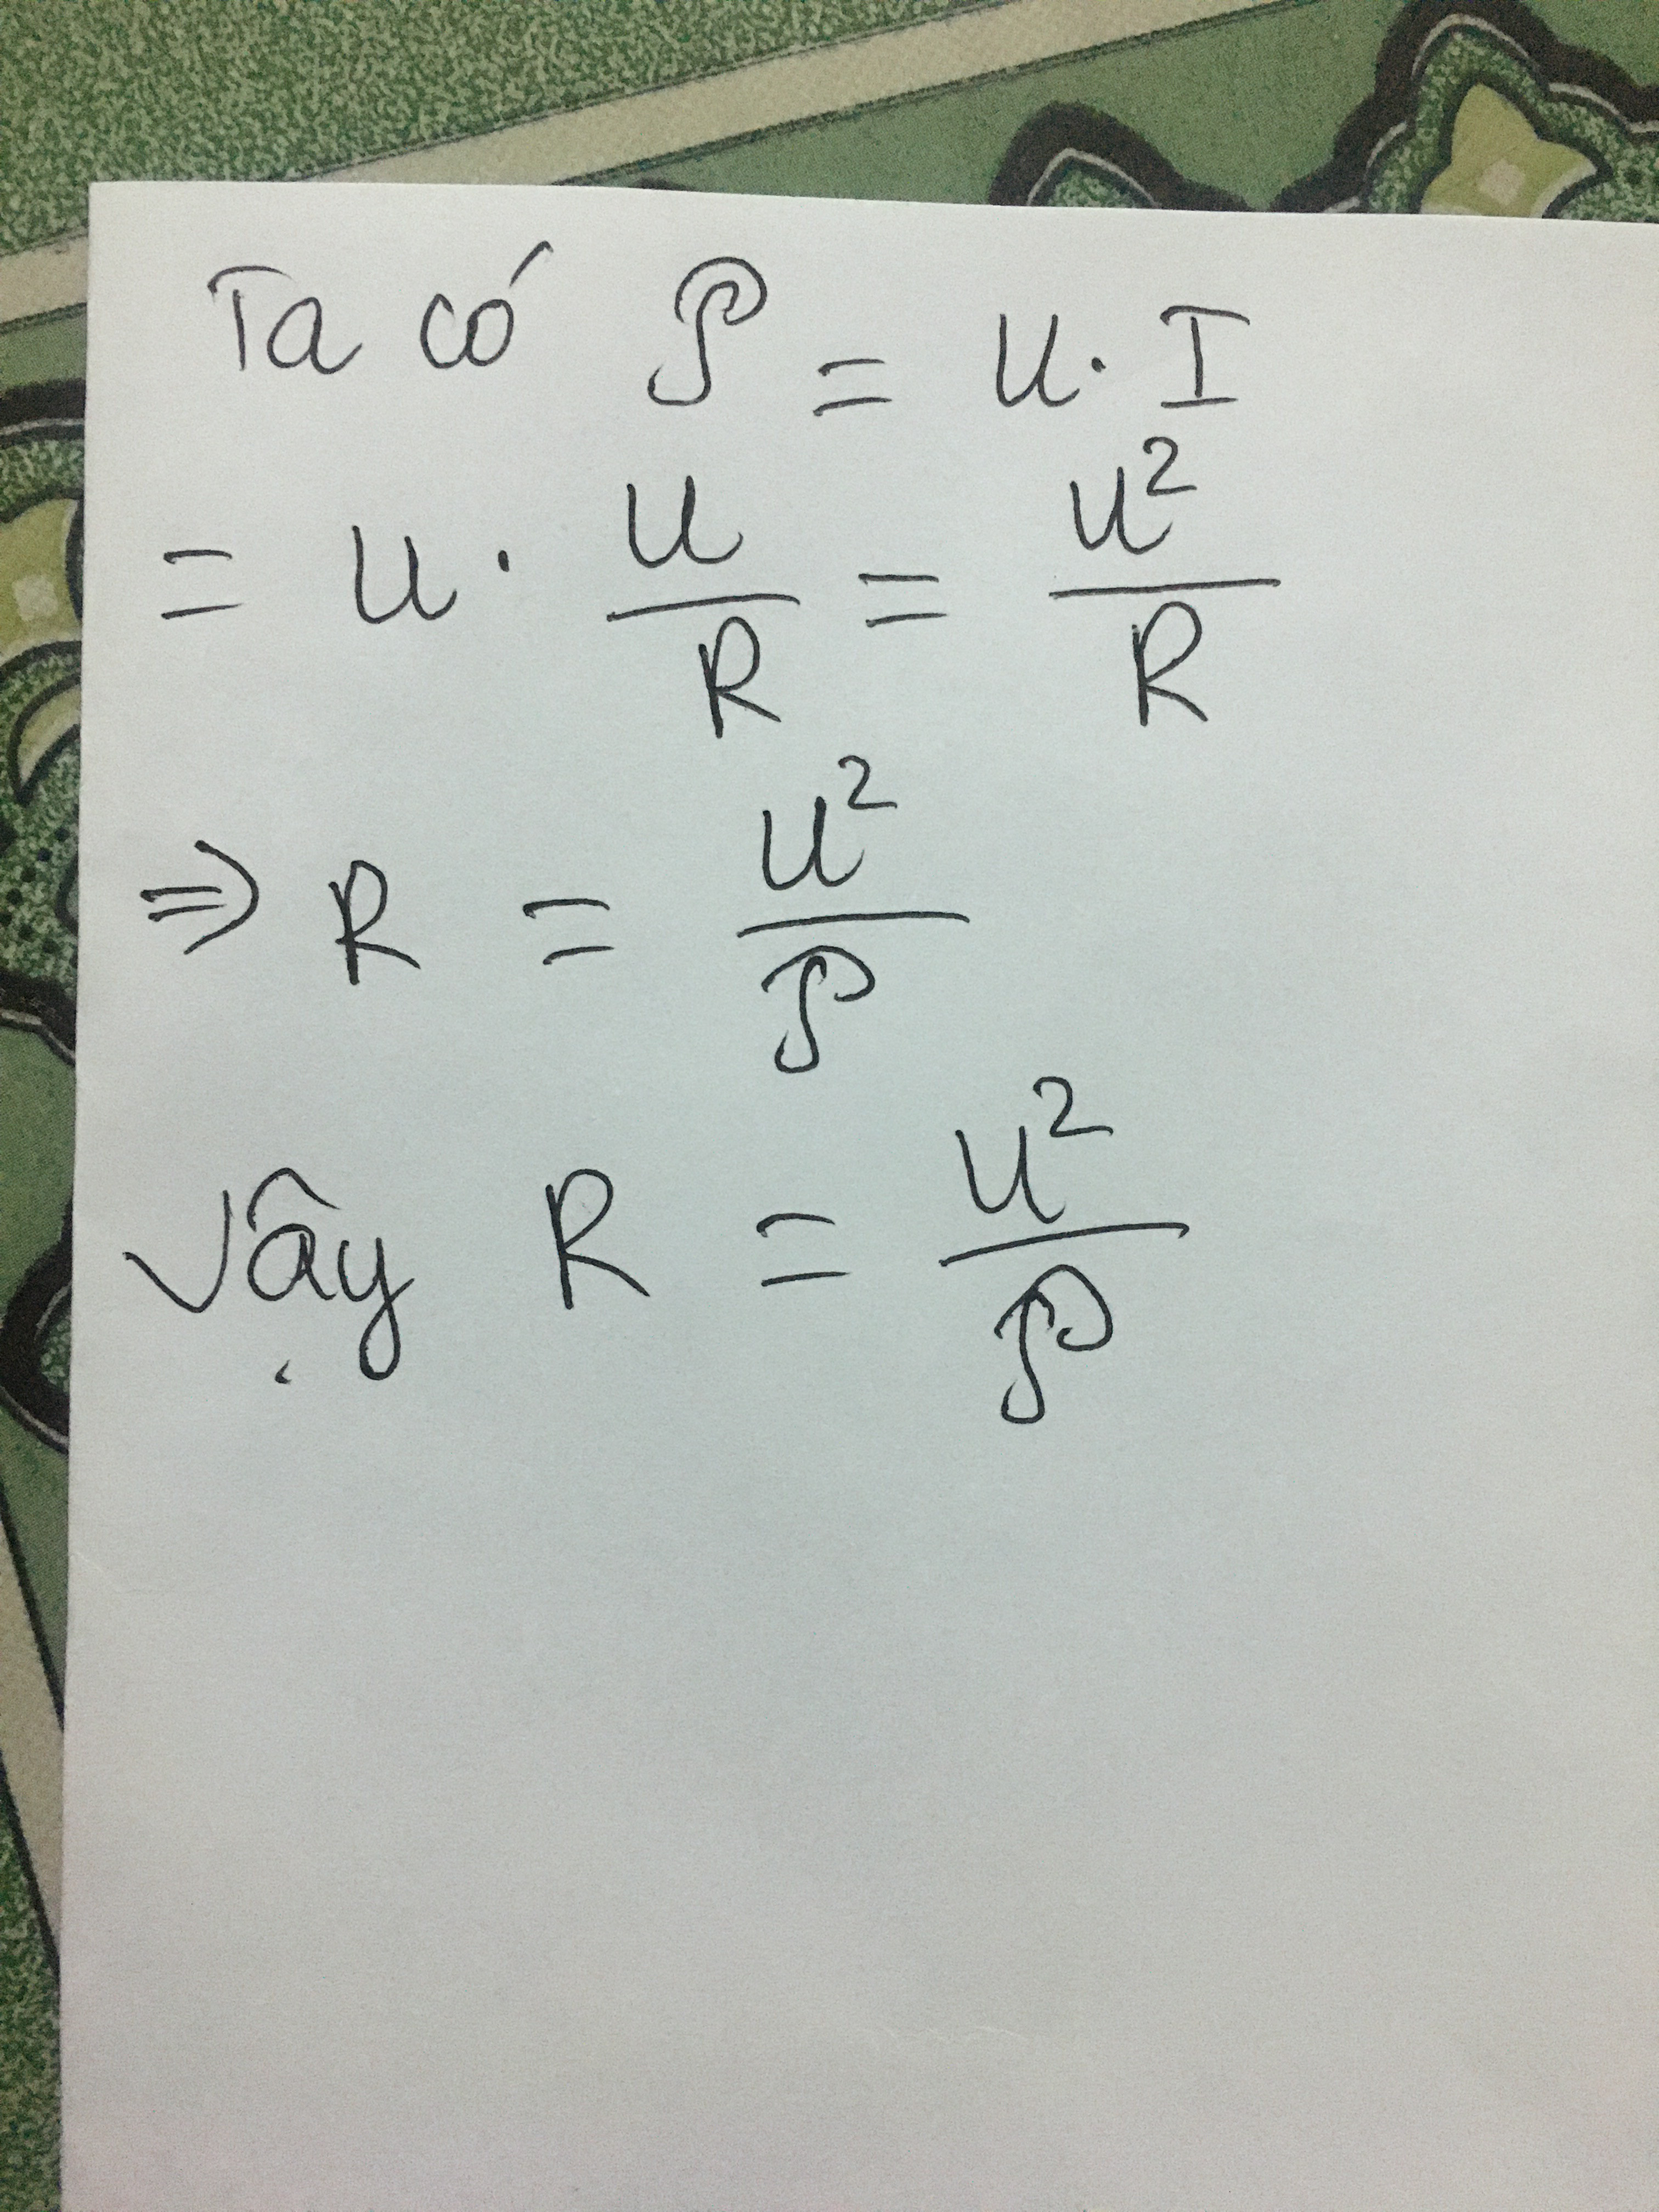 Ta có 𝒫 = U . I
= U . U/R = U²/R
⇒ R = U²/𝒫
Vậy R = U²/𝒫